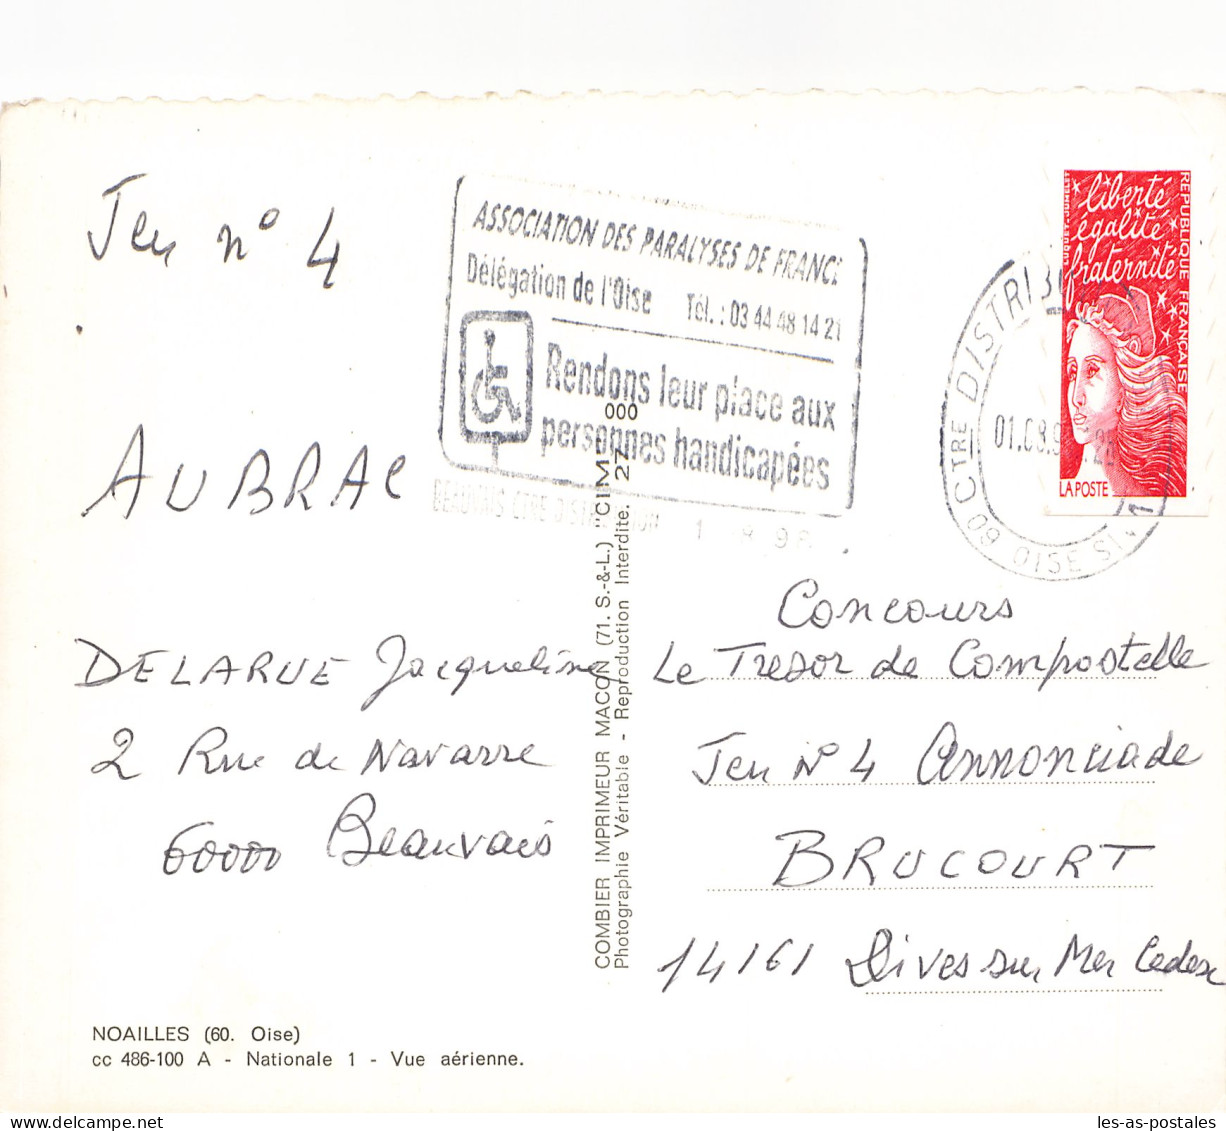 Jeu n° 4
AUBRAC
DELARUE Jacqueline
2 Rue de Navarre
60000 Beauvais
NOAILLES (60. Oise)
cc 486-100 A - Nationale 1 - Vue aérienne.
ASSOCIATION DES PARALYSES DE FRANCE
Délégation de l'Oise Tél. : 03 44 48 14 21
Rendons leur place aux
personnes handicapées
BEAUVAIS CTRE DISTRIBUTION
COMBIER IMPRIMEUR MACON (71. S.-&-L.) "CIM"
Photographie Véritable - Reproduction Interdite. 27
000
liberté
égalité
fraternité
REPUBLIQUE FRANÇAISE
LA POSTE
60 CTRE DISTRI
OISE
Concours
Le Tresor de Compostelle
Jeu N° 4 Annonciade
BRUCOURT
14161 Dives sur Mer Cedex
les-as-postales